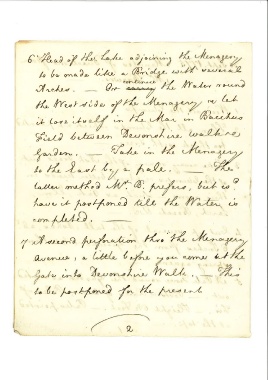 6 Head of the Lake adjoining the Menagery
to be made like a Bridge with several
Arches. — Or continue the Water round
the West side of the Menagery & let
it lose itself in the Mar in Bacchus
Field between Devonshire walk &
Garden. — Take in the Menagery
to the East by a pale. — The
latter method Mr. B. prefers, but is to
have it postponed till the Water is
completed.
7 A second perforation thro' the Menagery
Avenue, a little before you come at the
Gate into Devonshire Walk. — This
to be postponed for the present
2